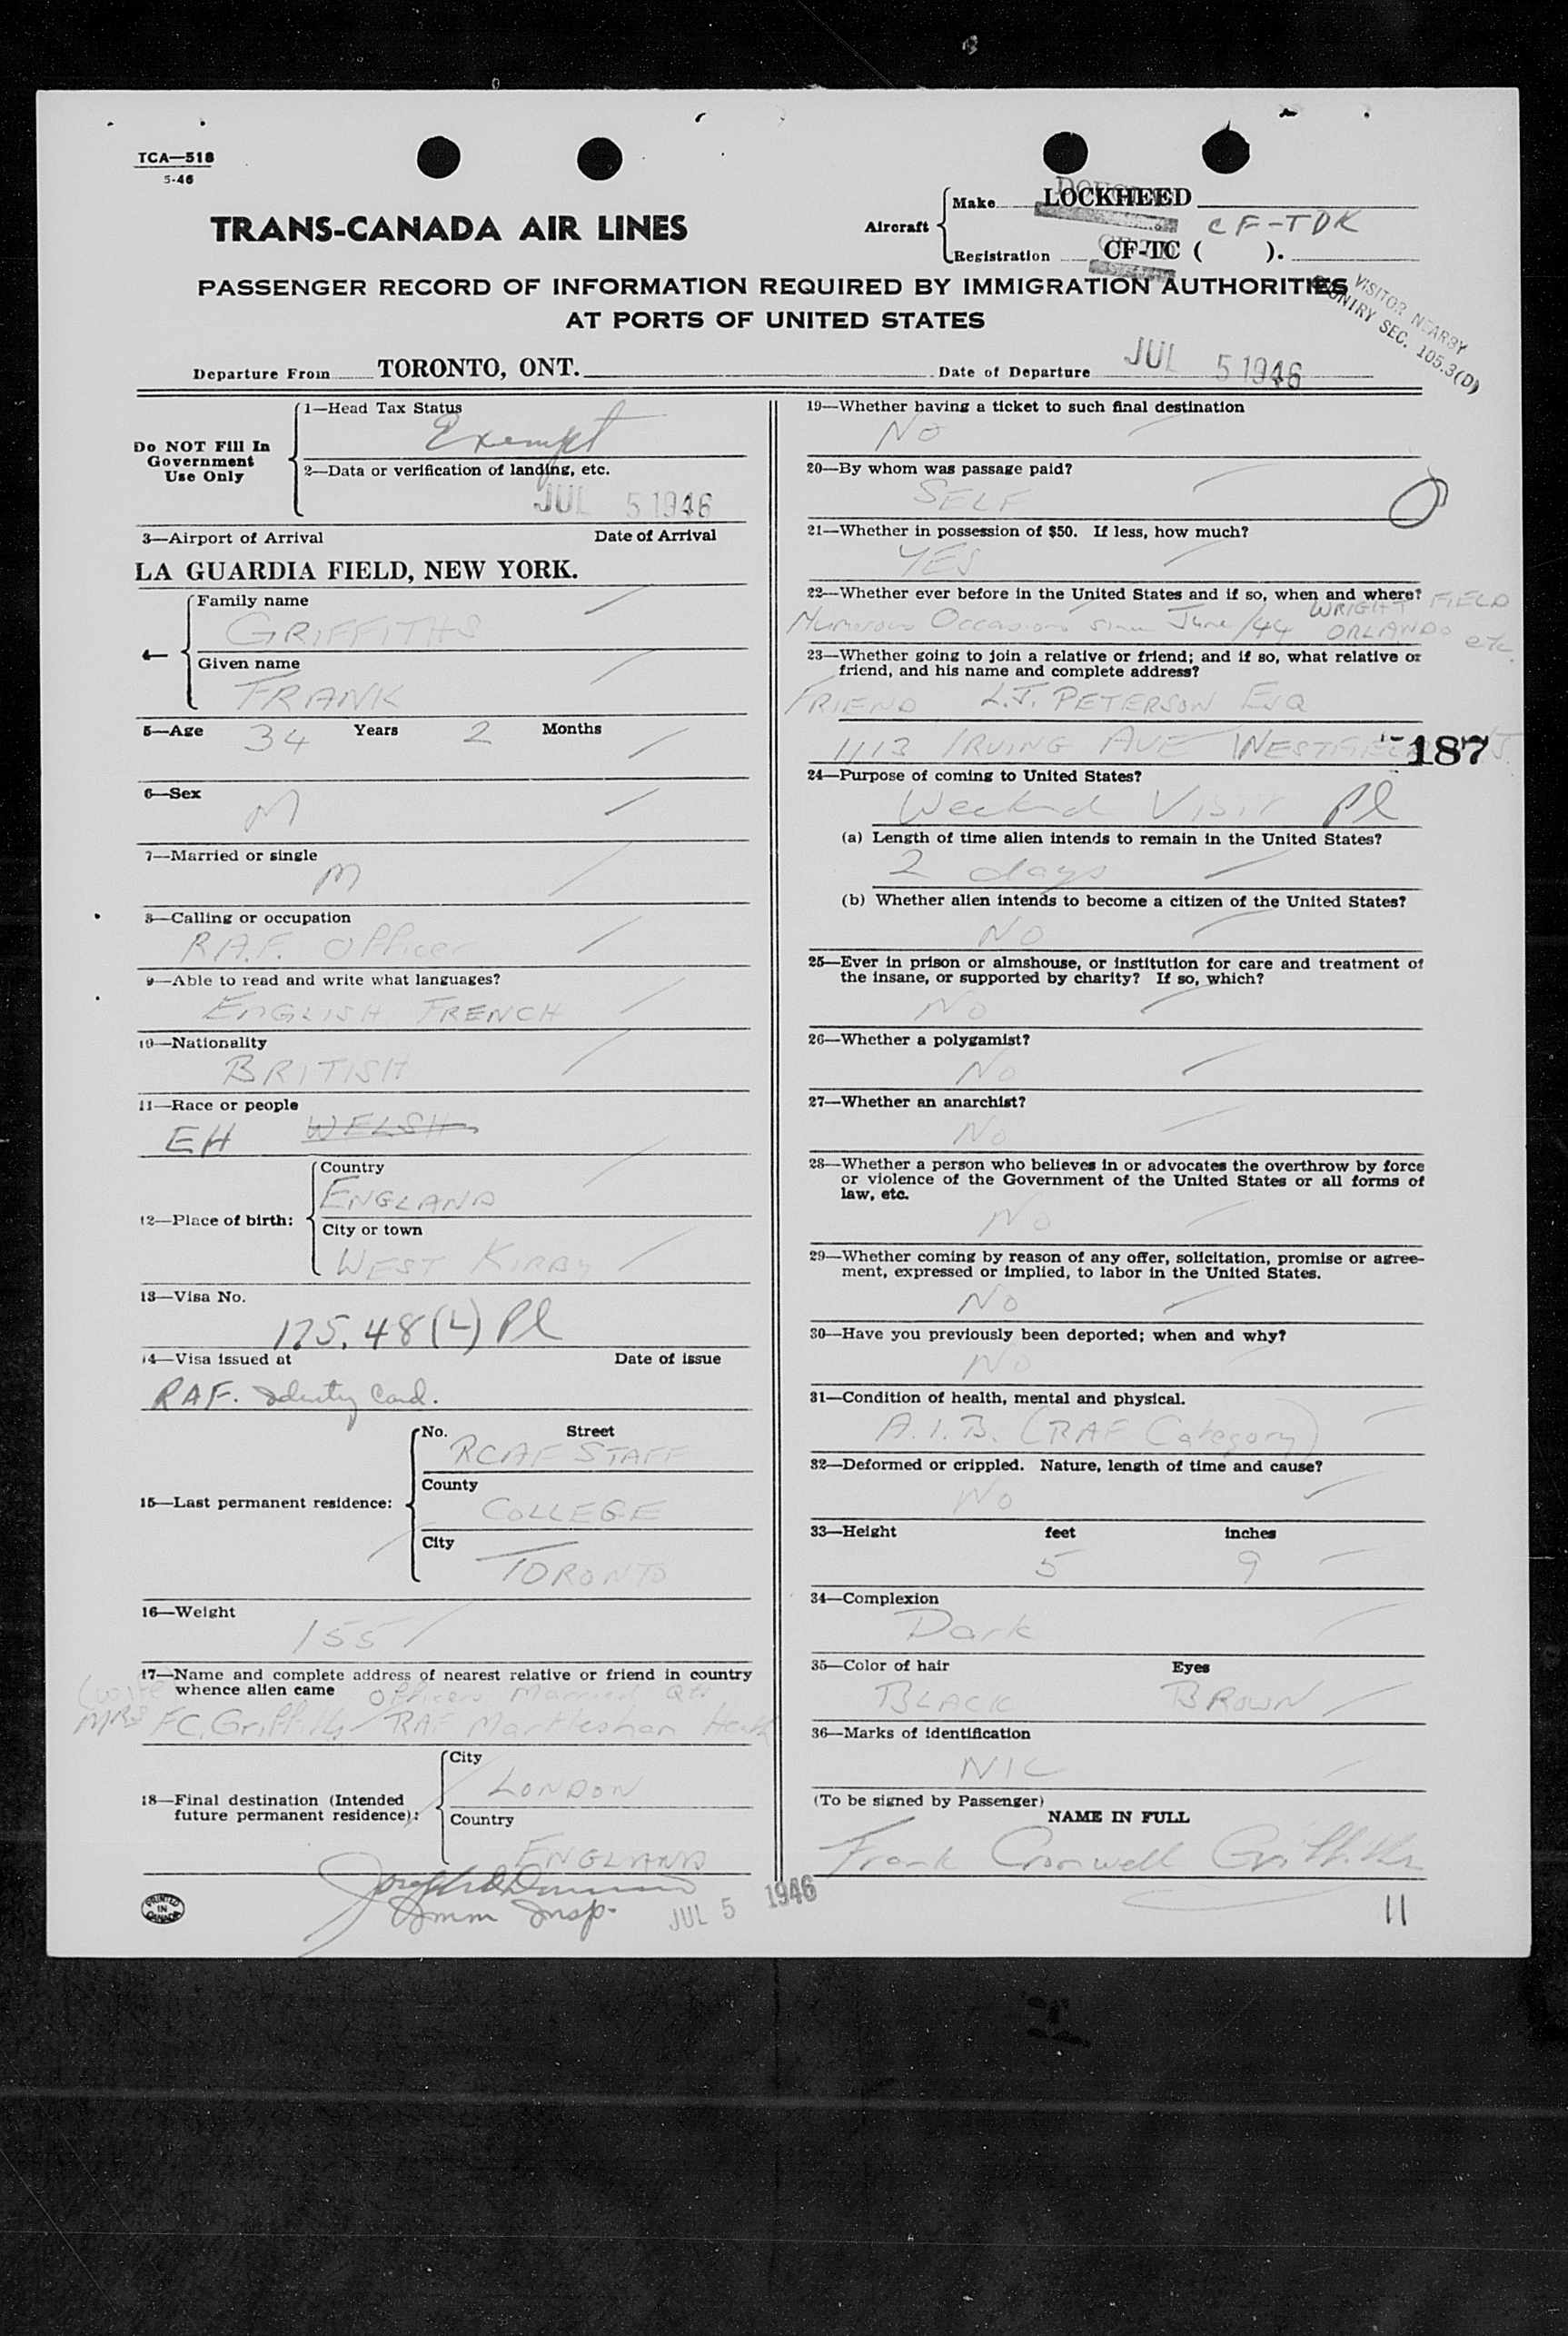 TCA—518
5-46
TRANS-CANADA AIR LINES
Aircraft
Make LOCKHEED
CF-TDK
Registration CF-TC ( ).
PASSENGER RECORD OF INFORMATION REQUIRED BY IMMIGRATION AUTHORITIES
AT PORTS OF UNITED STATES
VISITOR NEARBY
COUNTRY SEC. 105.3(D)
Departure From TORONTO, ONT. Date of Departure JUL 5 1946
Do NOT Fill In
Government
Use Only
1—Head Tax Status
Exempt
2—Data or verification of landing, etc.
JUL 5 1946
3—Airport of Arrival Date of Arrival
LA GUARDIA FIELD, NEW YORK.
Family name
GRIFFITHS
Given name
FRANK
5—Age 34 Years 2 Months
6—Sex
M
7—Married or single
M
8—Calling or occupation
R.A.F. Officer
9—Able to read and write what languages?
ENGLISH FRENCH
10—Nationality
BRITISH
11—Race or people
EH WELSH
12—Place of birth:
Country
ENGLAND
City or town
WEST KIRBY
13—Visa No.
175.48(L) Pl
14—Visa issued at Date of issue
RAF. Identity Card.
15—Last permanent residence:
No. Street
RCAF STAFF
County
COLLEGE
City
TORONTO
16—Weight
155
17—Name and complete address of nearest relative or friend in country
whence alien came Officers Married Qtrs
(Wife
MRS FC. Griffiths RAF Martlesham Heath
18—Final destination (Intended
future permanent residence):
City
LONDON
Country
ENGLAND
Imm Insp.
JUL 5 1946
PRINTED
IN
CANADA
19—Whether having a ticket to such final destination
NO
20—By whom was passage paid?
SELF
21—Whether in possession of $50. If less, how much?
YES
22—Whether ever before in the United States and if so, when and where?
Numerous Occasions since June/44 WRIGHT FIELD
ORLANDO etc.
23—Whether going to join a relative or friend; and if so, what relative or
friend, and his name and complete address?
FRIEND L.J. PETERSON ESQ
1113 IRVING AVE WESTFIELD NJ.
187
24—Purpose of coming to United States?
Weekend VISIT Pl
(a) Length of time alien intends to remain in the United States?
2 days
(b) Whether alien intends to become a citizen of the United States?
NO
25—Ever in prison or almshouse, or institution for care and treatment of
the insane, or supported by charity? If so, which?
NO
26—Whether a polygamist?
No
27—Whether an anarchist?
No
28—Whether a person who believes in or advocates the overthrow by force
or violence of the Government of the United States or all forms of
law, etc.
NO
29—Whether coming by reason of any offer, solicitation, promise or agree-
ment, expressed or implied, to labor in the United States.
No
30—Have you previously been deported; when and why?
No
31—Condition of health, mental and physical.
A.1.B. (RAF Category)
32—Deformed or crippled. Nature, length of time and cause?
No
33—Height feet inches
5 9
34—Complexion
Dark
35—Color of hair Eyes
BLACK BROWN
36—Marks of identification
NIL
(To be signed by Passenger)
NAME IN FULL
Frank Cromwell Griffiths
11